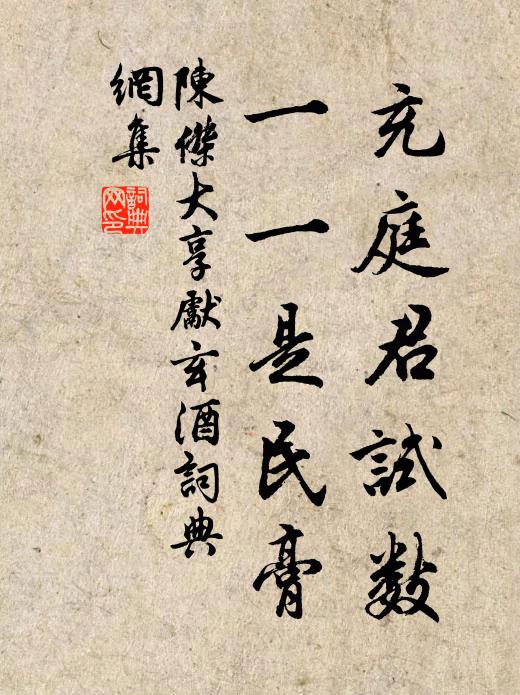 充庭君試數
一一是民膏
陳傑大享獻玄酒詞典
網集
詞典
网印